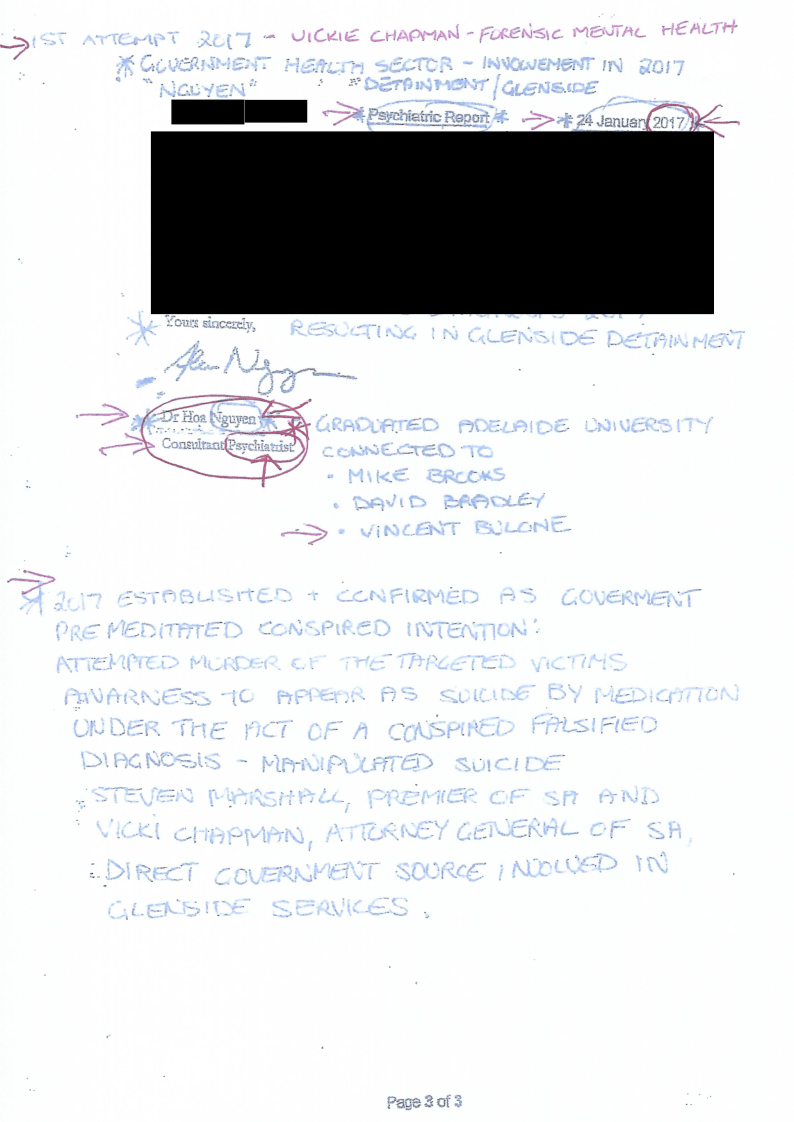 1ST ATTEMPT 2017 - VICKIE CHAPMAN - FORENSIC MENTAL HEALTH
* GOVERNMENT HEALTH SECTOR - INVOLVEMENT IN 2017
"NGUYEN" " DETAINMENT/GLENSIDE
* Psychiatric Report * * 24 January 2017 *
2017
Yours sincerely,
RESULTING IN GLENSIDE DETAINMENT
* Dr Hoa Nguyen *
Consultant Psychiatrist
* GRADUATED ADELAIDE UNIVERSITY
CONNECTED TO
• MIKE BROOKS
• DAVID BRADLEY
• VINCENT BULONE
* 2017 ESTABLISHED + CONFIRMED AS GOVERMENT
PREMEDITATED CONSPIRED INTENTION:
ATTEMPTED MURDER OF THE TARGETED VICTIMS
AWARNESS TO APPEAR AS SUICIDE BY MEDICATION
UNDER THE ACT OF A CONSPIRED FALSIFIED
DIAGNOSIS - MANIPULATED SUICIDE
STEVEN MARSHALL, PREMIER OF SA AND
VICKI CHAPMAN, ATTORNEY GENERAL OF SA,
DIRECT GOVERNMENT SOURCE INVOLVED IN
GLENSIDE SERVICES.
Page 3 of 3